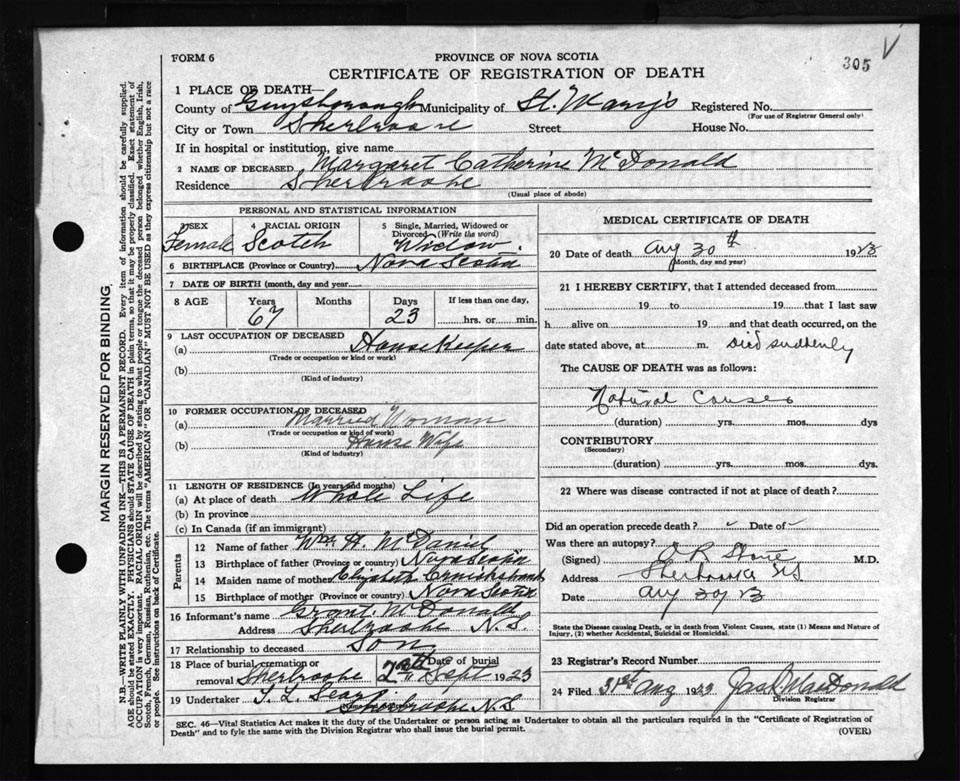 FORM 6
PROVINCE OF NOVA SCOTIA
305
V
CERTIFICATE OF REGISTRATION OF DEATH
1 PLACE OF DEATH—
County of Guysborough Municipality of St. Mary's Registered No.
(For use of Registrar General only)
City or Town Sherbrooke Street House No.
If in hospital or institution, give name
2 NAME OF DECEASED Margaret Catherine McDonald
Residence Sherbrooke
(Usual place of abode)
PERSONAL AND STATISTICAL INFORMATION
SEX 4 RACIAL ORIGIN 5 Single, Married, Widowed or Divorced (Write the word)
Female Scotch Widow.
6 BIRTHPLACE (Province or Country) Nova Scotia
7 DATE OF BIRTH (month, day and year)
8 AGE Years Months Days If less than one day,
67 23 hrs. or min.
9 LAST OCCUPATION OF DECEASED
(a) House Keeper
(Trade or occupation or kind or work)
(b)
(Kind of industry)
10 FORMER OCCUPATION OF DECEASED
(a) Married Woman
(Trade or occupation or kind of work)
(b) House Wife
(Kind of industry)
11 LENGTH OF RESIDENCE (In years and months)
(a) At place of death Whole Life
(b) In province
(c) In Canada (if an immigrant)
Parents
12 Name of father Wm H. McDaniel
13 Birthplace of father (Province or country) Nova Scotia
14 Maiden name of mother Elizabeth Cruickshank
15 Birthplace of mother (Province or country) Nova Scotia
16 Informant's name Grant McDonald
Address Sherbrooke N.S.
17 Relationship to deceased Son
18 Place of burial, cremation or removal Sherbrooke Date of burial Sept 1923
19 Undertaker
Sherbrooke N.S
MEDICAL CERTIFICATE OF DEATH
20 Date of death Aug 30th 1923
(Month, day and year)
21 I HEREBY CERTIFY, that I attended deceased from
19 to 19 that I last saw
h alive on 19 and that death occurred, on the
date stated above, at m. Died suddenly
The CAUSE OF DEATH was as follows:
Natural Causes
(duration) yrs. mos. dys
CONTRIBUTORY
(Secondary)
(duration) yrs. mos. dys.
22 Where was disease contracted if not at place of death?
Did an operation precede death? Date of
Was there an autopsy?
(Signed) M.D.
Address Sherbrooke NS
Date Aug 30/23
State the Disease causing Death, or in death from Violent Causes, state (1) Means and Nature of Injury, (2) whether Accidental, Suicidal or Homicidal.
23 Registrar's Record Number
24 Filed 31st Aug 1923 Jas B McDonald
Division Registrar
SEC. 46—Vital Statistics Act makes it the duty of the Undertaker or person acting as Undertaker to obtain all the particulars required in the "Certificate of Registration of
Death" and to fyle the same with the Division Registrar who shall issue the burial permit.
(OVER)
MARGIN RESERVED FOR BINDING
N.B.—WRITE PLAINLY WITH UNFADING INK—THIS IS A PERMANENT RECORD. Every item of information should be carefully supplied.
AGE should be stated EXACTLY. PHYSICIANS should STATE CAUSE OF DEATH in plain terms, so that it may be properly classified. Exact statement of
OCCUPATION is very important. RACIAL ORIGIN will be described by stating to what people or tongue the deceased person belonged whether English, Irish,
Scotch, French, German, Russian, Ruthenian, etc. The terms "AMERICAN" or "CANADIAN" MUST NOT BE USED as they express citizenship but not a race
or people. See instructions on back of Certificate.